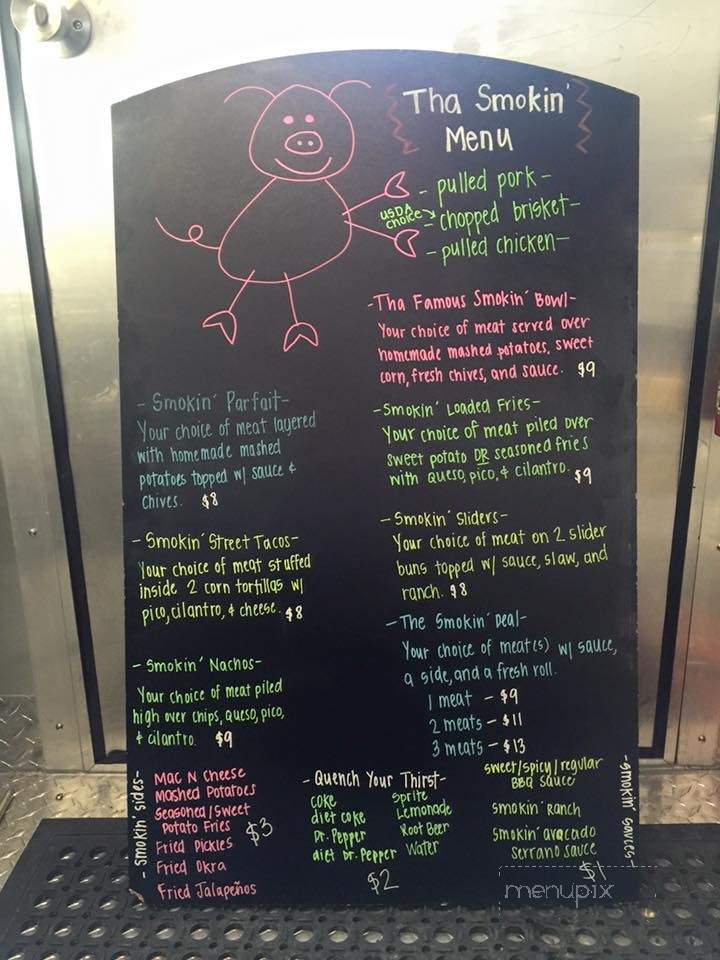 Tha Smokin'
Menu
- pulled pork -
USDA
choice
- chopped brisket -
- pulled chicken -
- Tha Famous Smokin' Bowl -
Your choice of meat served over
homemade mashed potatoes, sweet
corn, fresh chives, and sauce. $9
- Smokin' Parfait -
Your choice of meat layered
with homemade mashed
potatoes topped w/ sauce &
chives. $8
- Smokin' Loaded Fries -
Your choice of meat piled over
sweet potato OR seasoned fries
with queso, pico, & cilantro. $9
- Smokin' Street Tacos -
Your choice of meat stuffed
inside 2 corn tortillas w/
pico, cilantro, & cheese. $8
- Smokin' Sliders -
Your choice of meat on 2 slider
buns topped w/ sauce, slaw, and
ranch. $8
- Smokin' Nachos -
Your choice of meat piled
high over chips, queso, pico,
& cilantro. $9
- The Smokin' Deal -
Your choice of meat(s) w/ sauce,
a side, and a fresh roll.
1 meat - $9
2 meats - $11
3 meats - $13
- Smokin' sides -
Mac N Cheese
Mashed Potatoes
Seasoned/Sweet
Potato Fries
Fried Pickles
Fried Okra
Fried Jalapeños
$3
- Quench Your Thirst -
Coke
diet coke
Dr. Pepper
diet Dr. Pepper
Sprite
Lemonade
Root Beer
Water
$2
- Smokin' sauces -
sweet/spicy/regular
BBQ sauce
smokin' Ranch
smokin' avocado
serrano sauce
$1
menupix